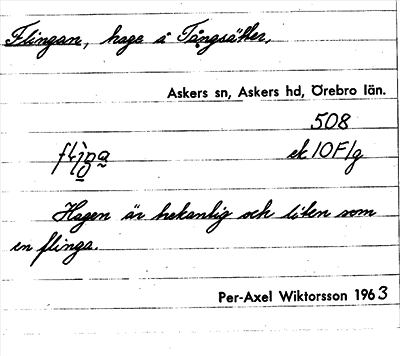 Flingan, hage å Tångsätter.
Askers sn, Askers hd, Örebro län.
508
ek 10F1g
Hagen är trekantig och liten som
en flinga.
Per-Axel Wiktorsson 1963